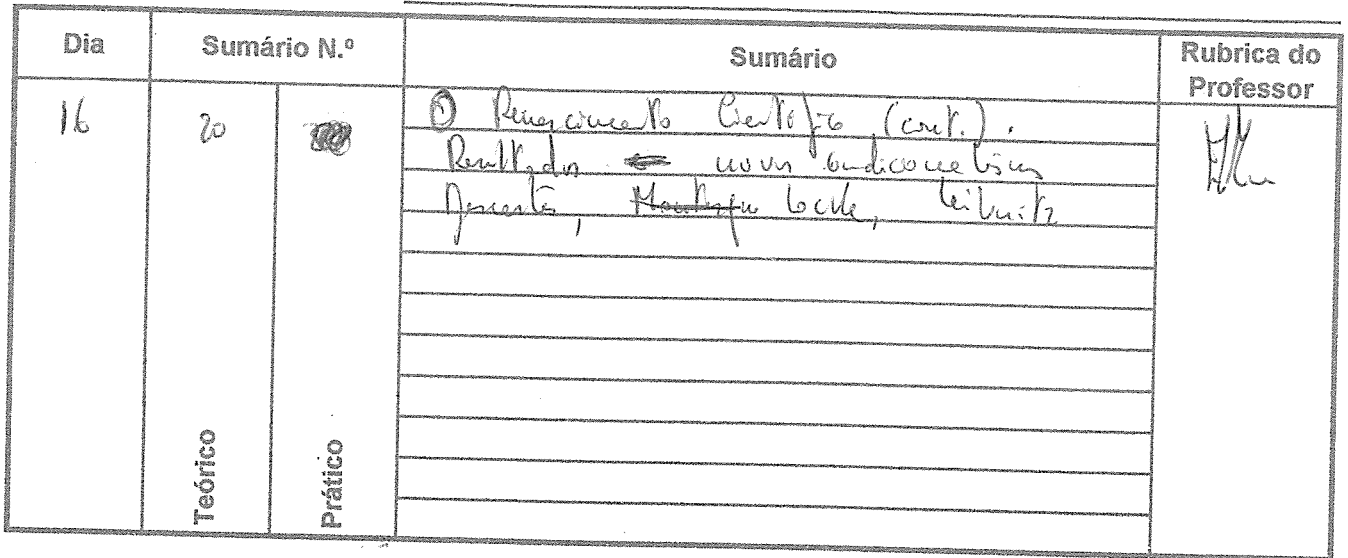 Dia Sumário N.º Sumário Rubrica do Professor
16 20 O Renascimento Científico (cont.).
Resultados novos condicionalismos
Descartes, Locke, Leibnitz
Teórico Prático